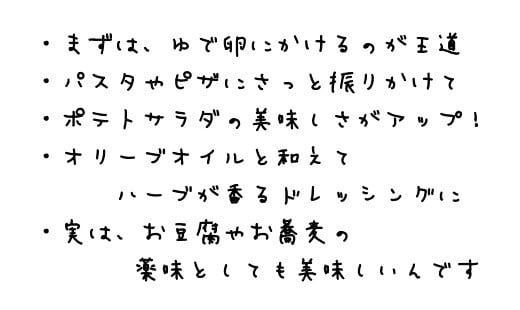 ・まずは、ゆで卵にかけるのが王道
・パスタやピザにさっと振りかけて
・ポテトサラダの美味しさがアップ!
・オリーブオイルと和えて
ハーブが香るドレッシングに
・実は、お豆腐やお蕎麦の
薬味としても美味しいんです